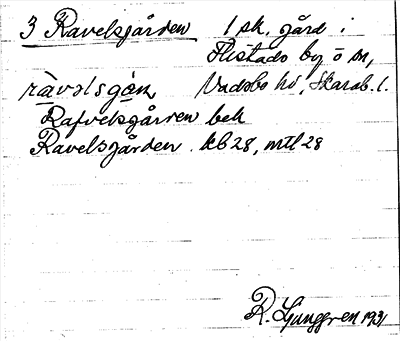 3 Ravelsgården 1 sk. gård i
Flistads by o sn,
ràvəlsgọ̀n Vadsbo hd, Skarab. l.
Rafvelsgårren bek
Ravelsgården. kb 28, mtl 28
R. Ljunggren 1931